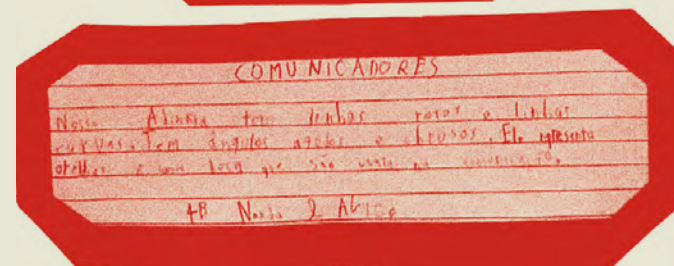 COMUNICADORES
Nosso Adinkra tem linhas retas e linhas
curvas. Tem ângulos agudos e obtusos. Ele representa
orelhas e uma boca que são usadas na comunicação.
4B